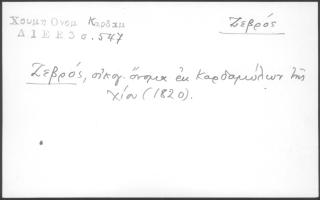 Χουμη Ονομ Καρδαμ
ΔΙΕΕ3 σ. 547
Ζεβρός
Ζεβρός, οἰκογ. ὄνομα ἐκ Καρδαμύλων τῆς
Χίου (1820).